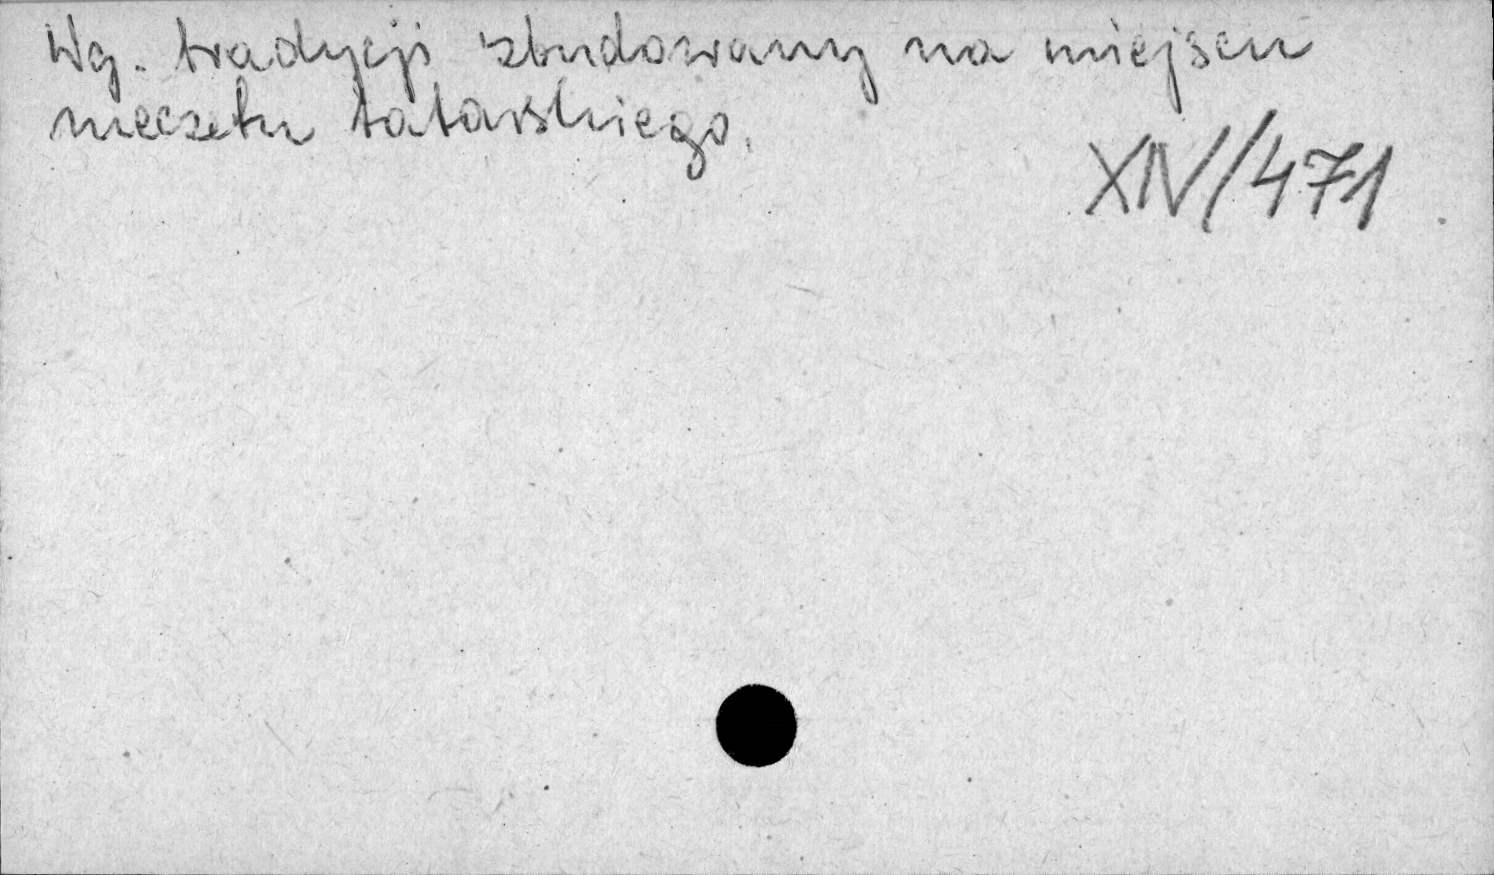 Wg. tradycji zbudowany na miejscu
meczetu tatarskiego.
XIV/471